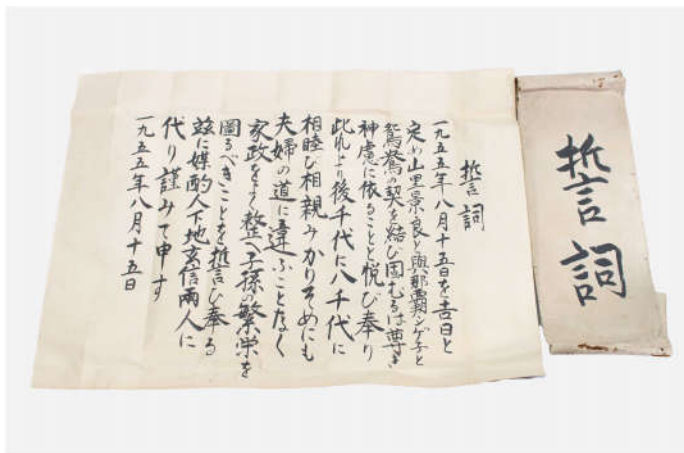 誓詞
一九五五年八月十五日を吉日と
定め山里景良と與那覇シゲ子と
鴛鴦の契を結び固むるは尊き
神慮に依ることと悦び奉り
此れより後千代に八千代に
相睦び相親みかりそめにも
夫婦の道に違ふことなく
家政をよく整へ子孫の繁栄を
圖るべきことを誓ひ奉る
茲に媒酌人下地玄信両人に
代り謹みて申す
一九五五年八月十五日
誓詞